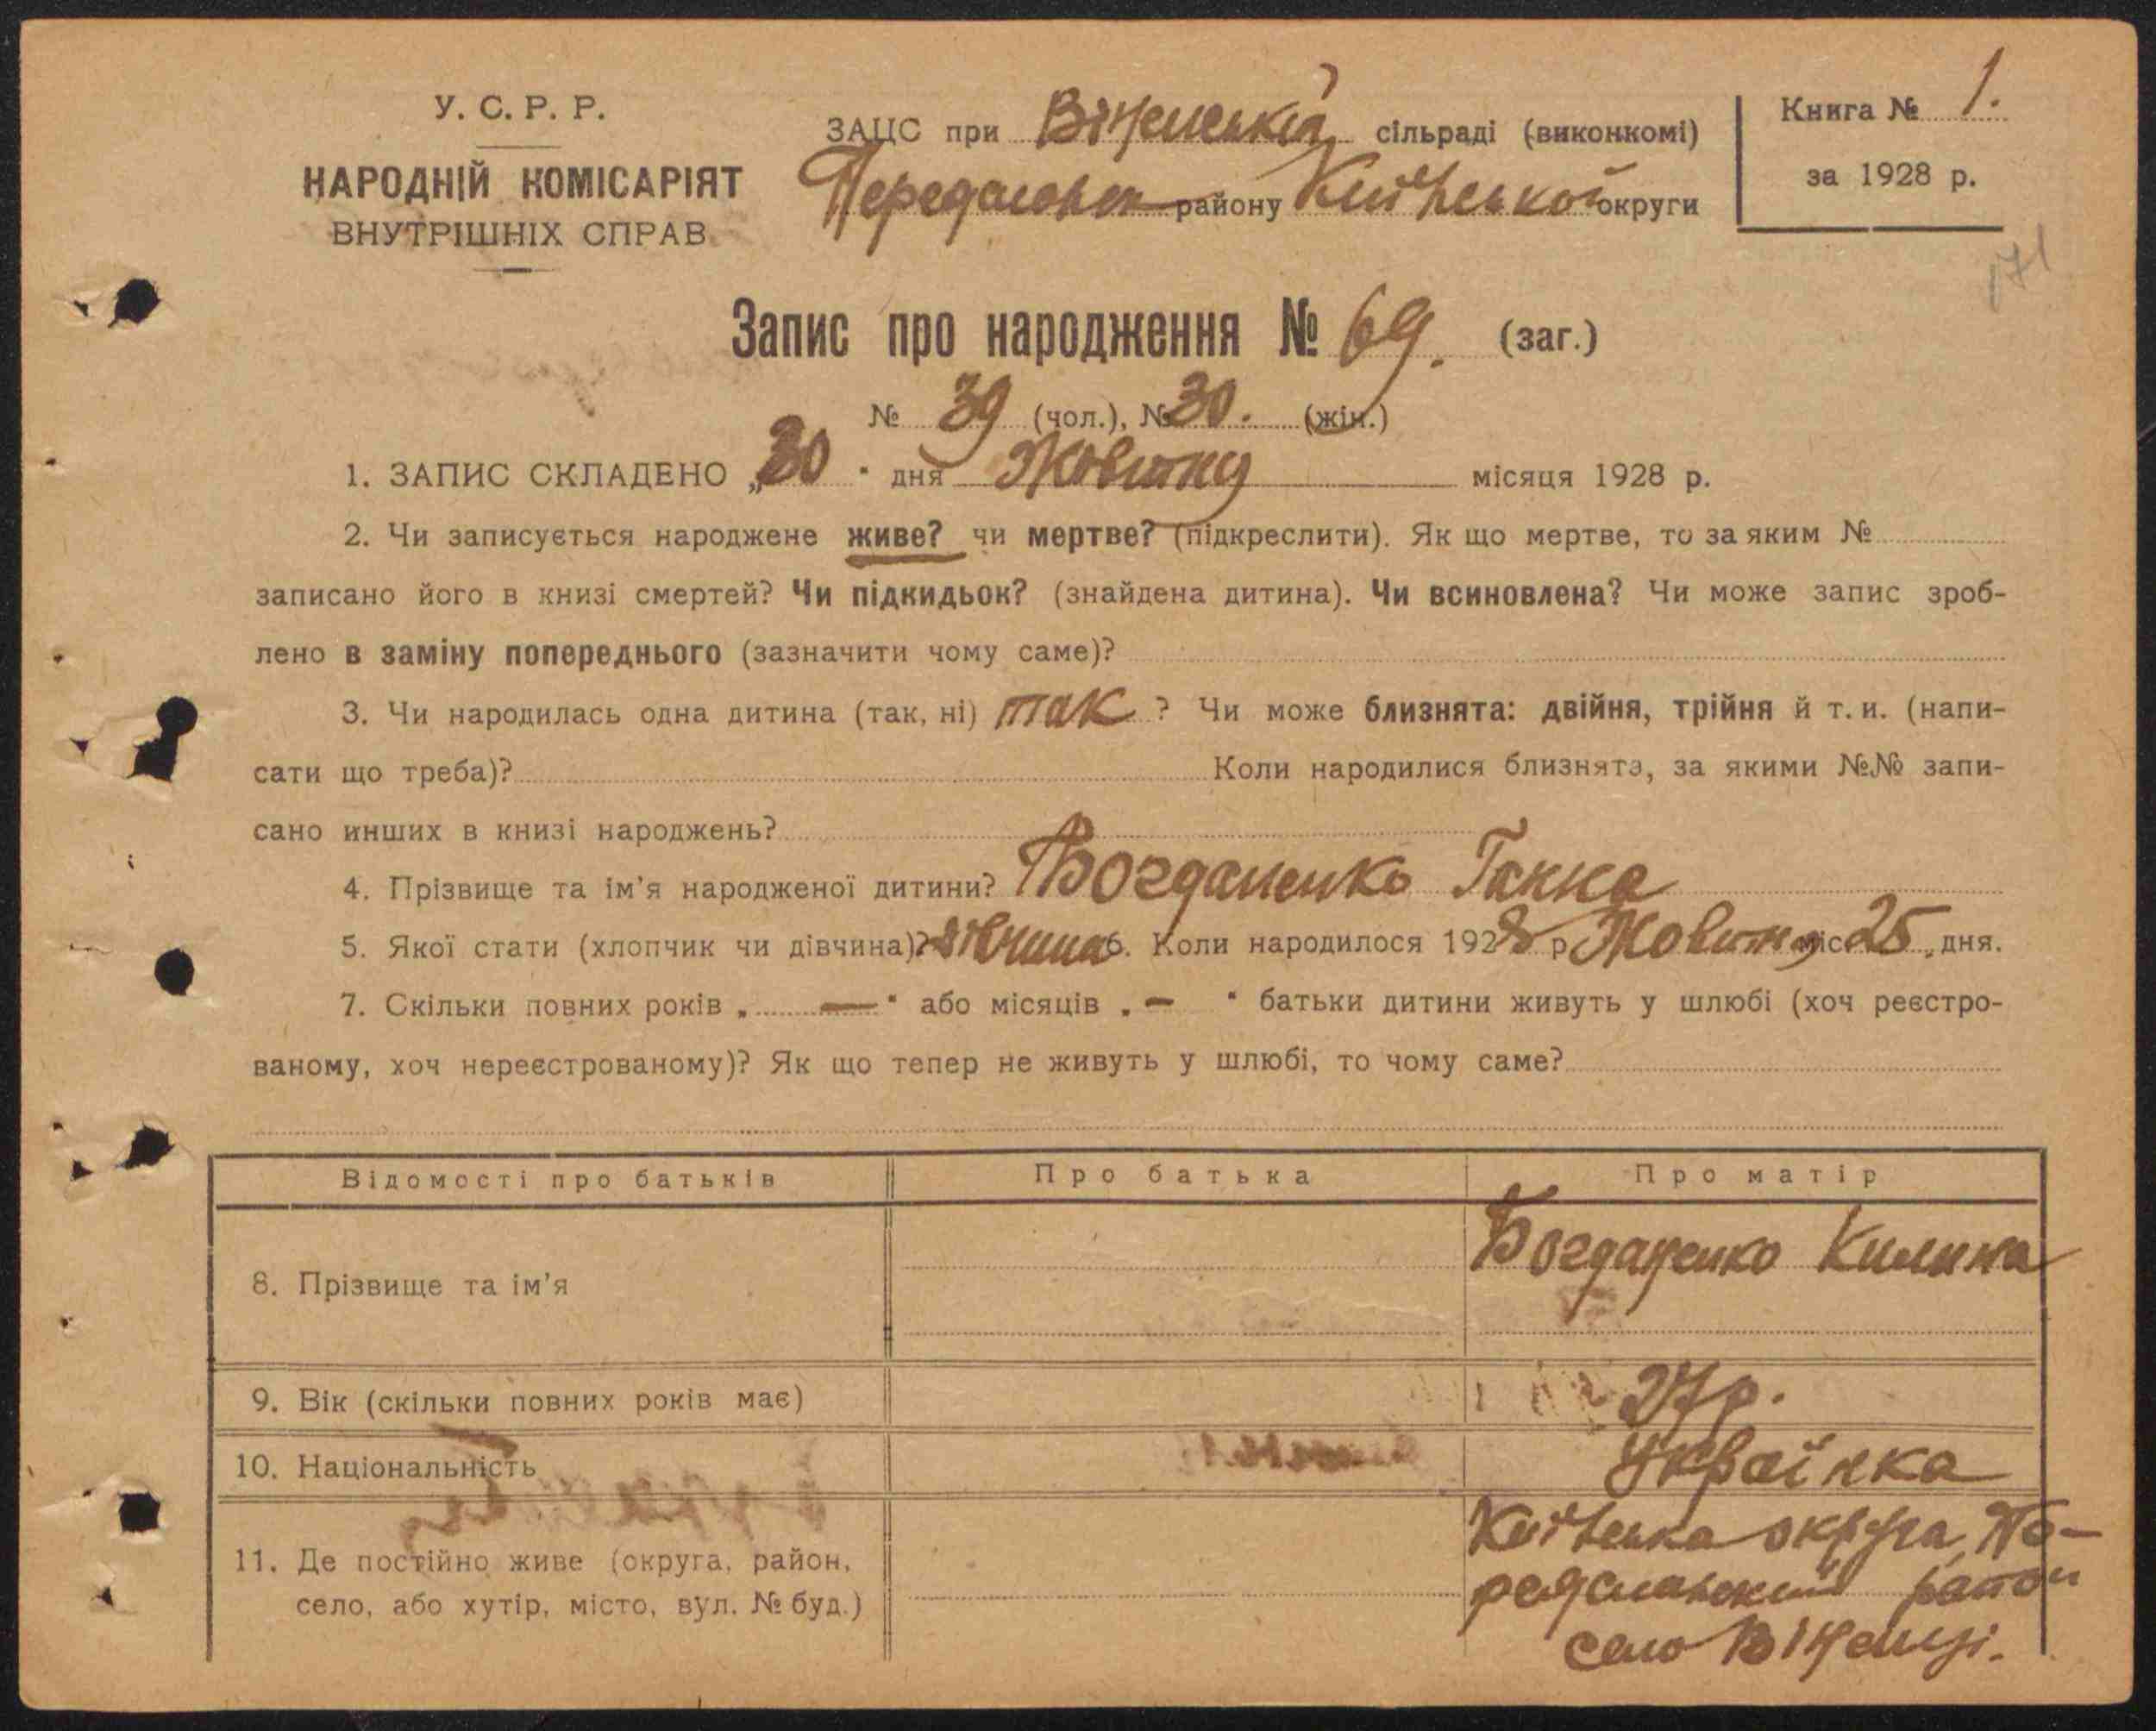 У. С. Р. Р.
НАРОДНІЙ КОМІСАРІЯТ
ВНУТРІШНІХ СПРАВ
ЗАЦС при сільраді (виконкомі)
району Київської округи
Книга № 1.
за 1928 р.
171
Запис про народження № 69. (заг.)
№ 39 (чол.), № 30. (жін.)
1. ЗАПИС СКЛАДЕНО „30" дня Жовтня місяця 1928 р.
2. Чи записується народжене живе? чи мертве? (підкреслити). Як що мертве, то за яким №
записано його в книзі смертей? Чи підкидьок? (знайдена дитина). Чи всиновлена? Чи може запис зроб-
лено в заміну попереднього (зазначити чому саме)?
3. Чи народилась одна дитина (так, ні) так ? Чи може близнята: двійня, трійня й т. и. (напи-
сати що треба)? Коли народилися близнята, за якими №№ запи-
сано инших в книзі народжень?
4. Прізвище та ім'я народженої дитини? Богданенко Ганна
5. Якої стати (хлопчик чи дівчина)? дівчина 6. Коли народилося 1928 р. Жовтня міс. 25 „ дня.
7. Скільки повних років „ — " або місяців „ — " батьки дитини живуть у шлюбі (хоч реєстро-
ваному, хоч нереєстрованому)? Як що тепер не живуть у шлюбі, то чому саме?
Відомості про батьків Про батька Про матір
8. Прізвище та ім'я Богданенко Килина
9. Вік (скільки повних років має) 27 р.
10. Національність Українка
11. Де постійно живе (округа, район,
село, або хутір, місто, вул. № буд.)
Київська округа, Пе-
реяславський район
село Віненці.